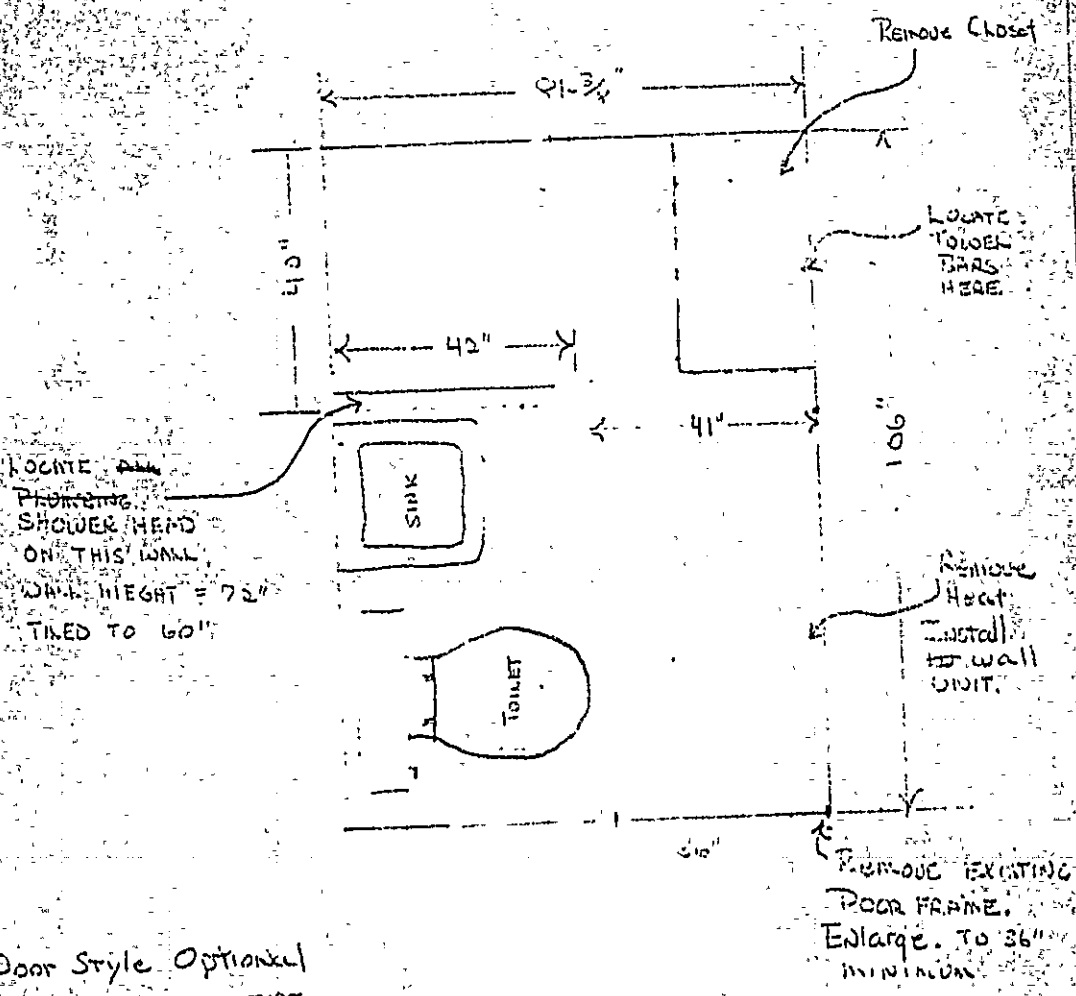 Remove Closet
91-3/4"
40"
LOCATE
TOWEL
BARS
HERE.
42"
41"
106"
LOCATE ALL
PLUMBING
SHOWER HEAD
ON THIS WALL
WALL HIEGHT = 72"
TILED TO 60"
SINK
Remove
Heat
Install
IN wall
UNIT.
TOILET
REMOVE EXISTING
DOOR FRAME.
Enlarge. TO 36"
MINIMUM
Door Style Optional